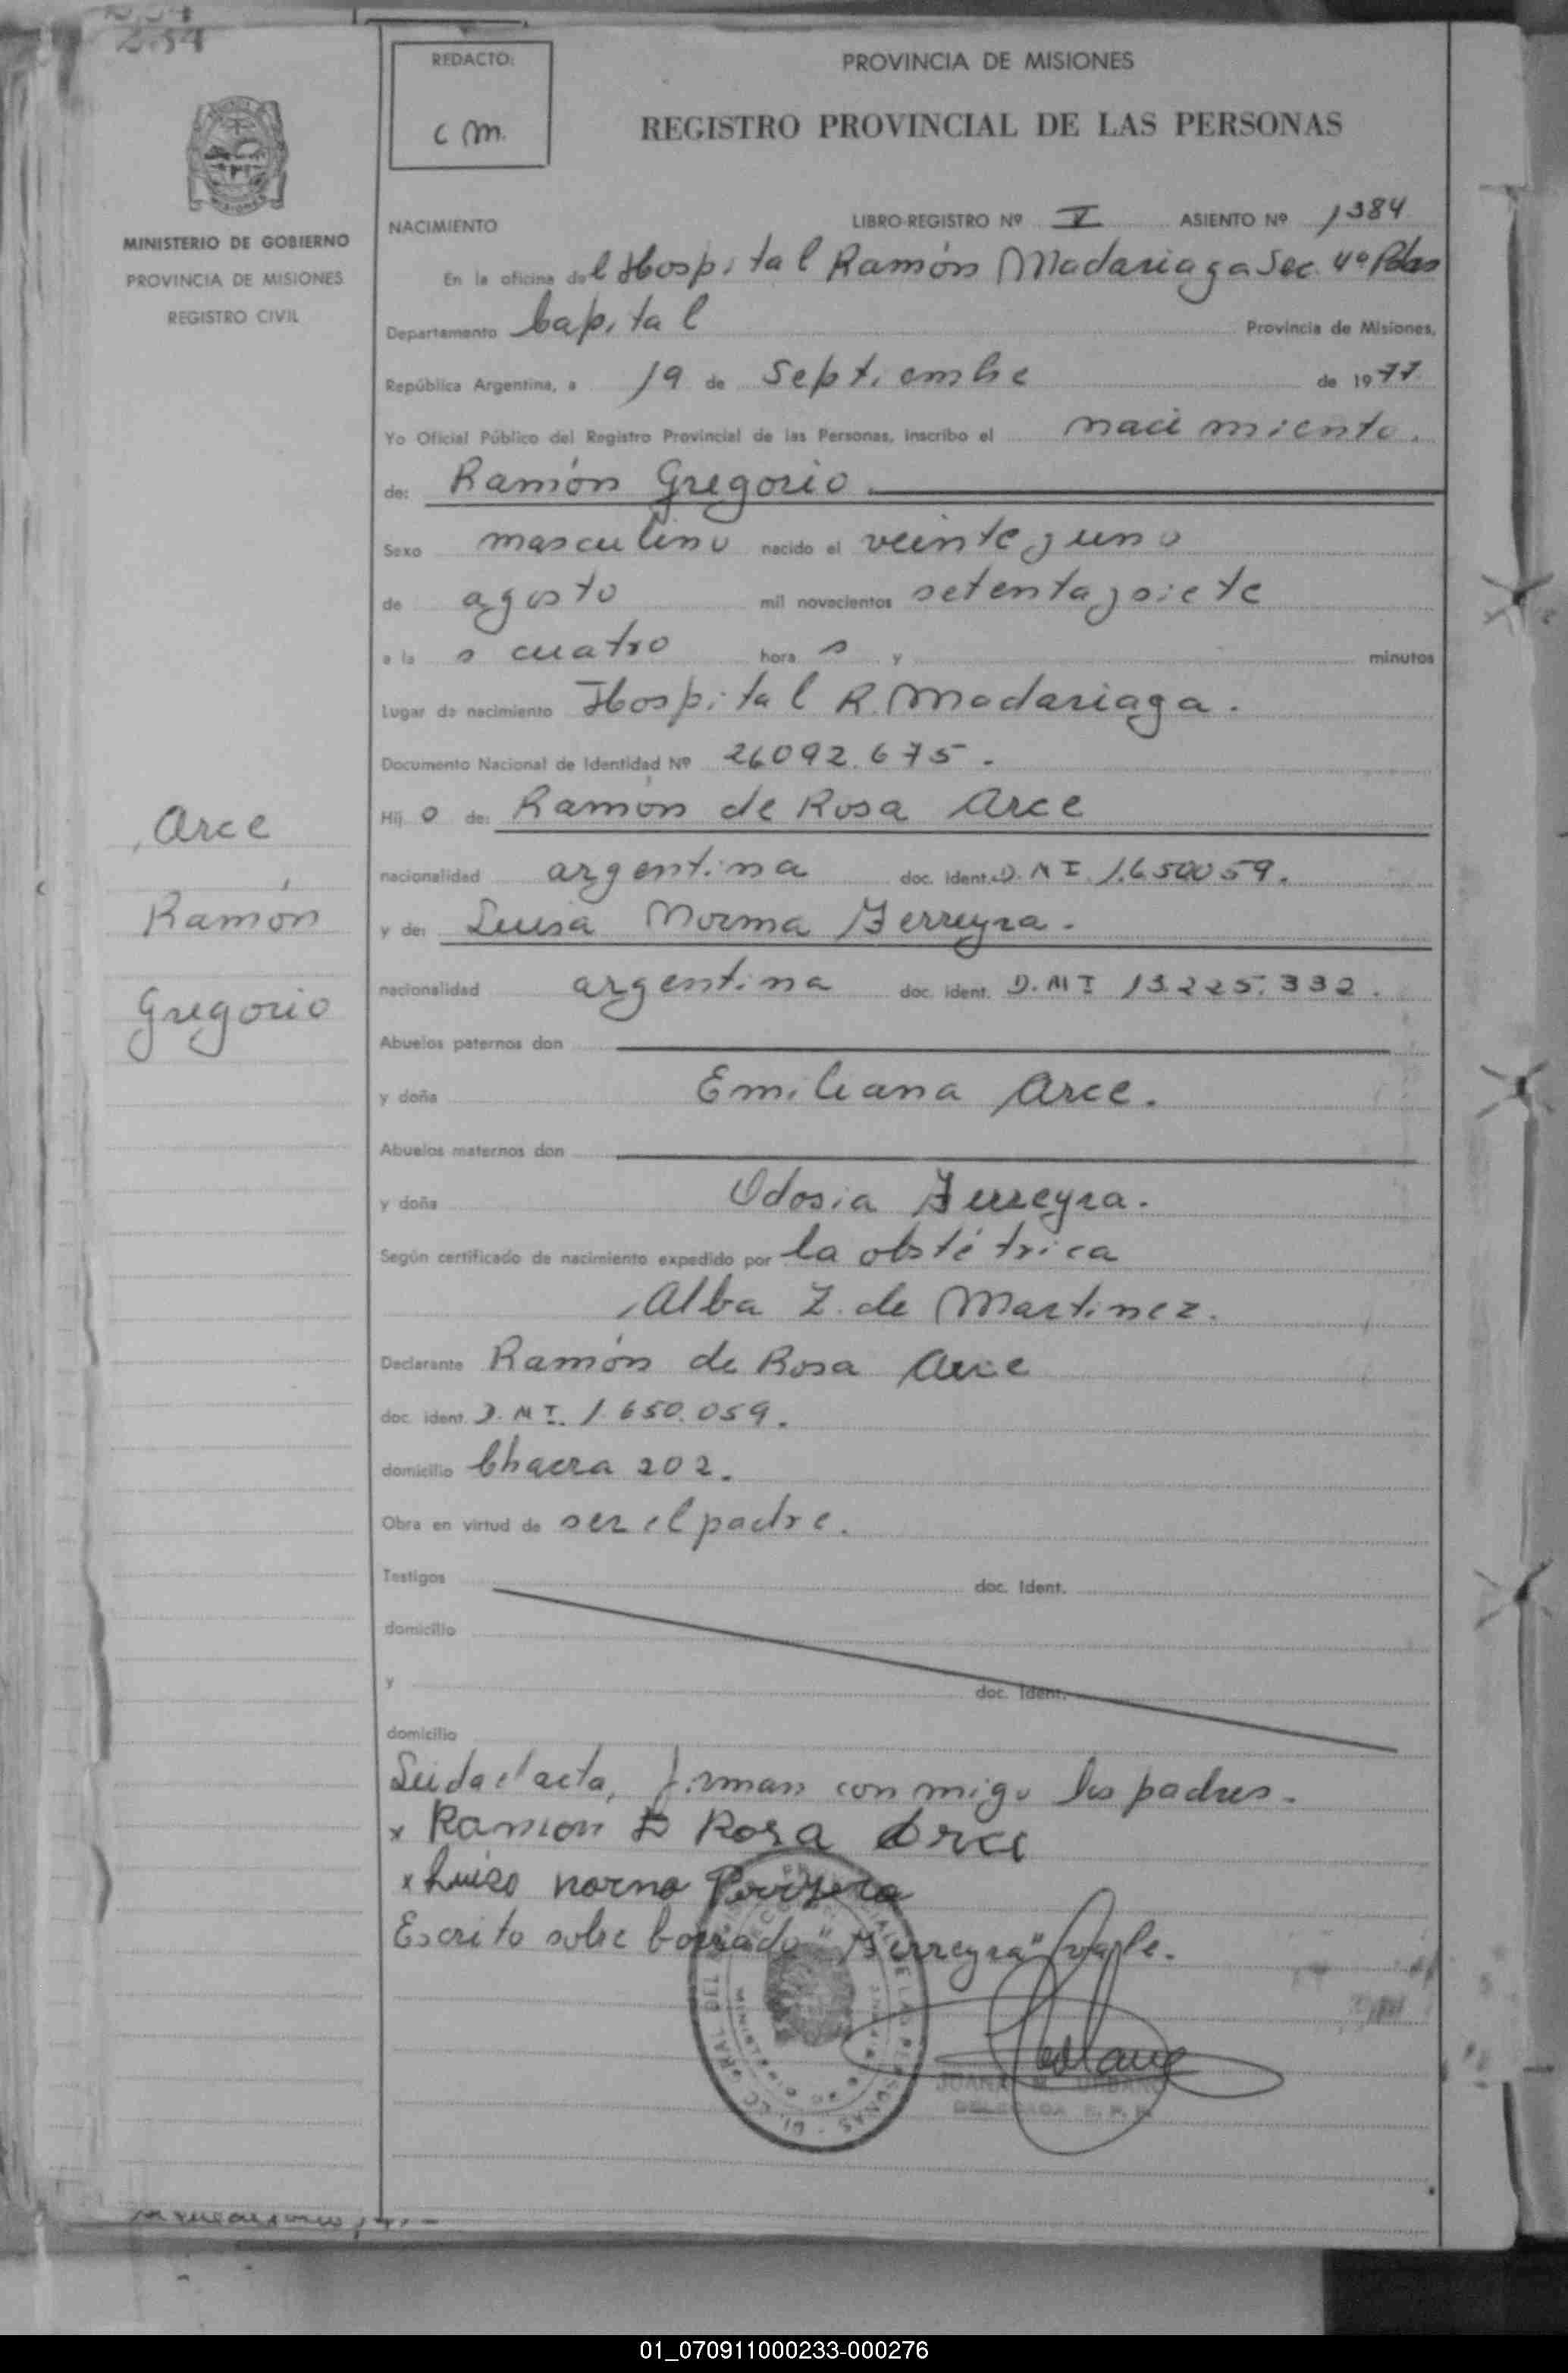 REDACTO:
C M.
PROVINCIA DE MISIONES
REGISTRO PROVINCIAL DE LAS PERSONAS
MINISTERIO DE GOBIERNO
PROVINCIA DE MISIONES
REGISTRO CIVIL
NACIMIENTO LIBRO-REGISTRO Nº V ASIENTO Nº 1384
En la oficina del Hospital Ramón Madariaga Sec. 4ª Pdas
Departamento Capital Provincia de Misiones,
República Argentina, a 19 de Septiembre de 1977
Yo Oficial Público del Registro Provincial de las Personas, inscribo el nacimiento.
de: Ramón Gregorio
Sexo masculino nacido el veinte y uno
de agosto mil novecientos setenta y siete
a las cuatro horas y minutos
Lugar de nacimiento Hospital R. Madariaga.
Documento Nacional de Identidad Nº 26092.675.
Hijo de: Ramón de Rosa Arce
nacionalidad argentina doc. ident. D.N I. 1.650059.
y de: Luisa Norma Ferreyra.
nacionalidad argentina doc. ident. D.N I 13.225.332.
Abuelos paternos don
y doña Emiliana Arce.
Abuelos maternos don
y doña Odosia Ferreyra.
Según certificado de nacimiento expedido por la obstétrica
Alba Z. de Martinez.
Declarante Ramón de Rosa Arce
doc. ident. D. N I. 1.650.059.
domicilio Chacra 202.
Obra en virtud de ser el padre.
Testigos doc. Ident.
domicilio
y doc. Ident.
domicilio
Leida el acta, firman conmigo los padres.
x Ramon D Rosa Arce
x Luisa norma Ferreyra
Escrito sobre borrado "Ferreyra" vale.
JUANA M. URBANO
DELEGADA R. P. P.
Arce
Ramón
Gregorio
01_070911000233-000276